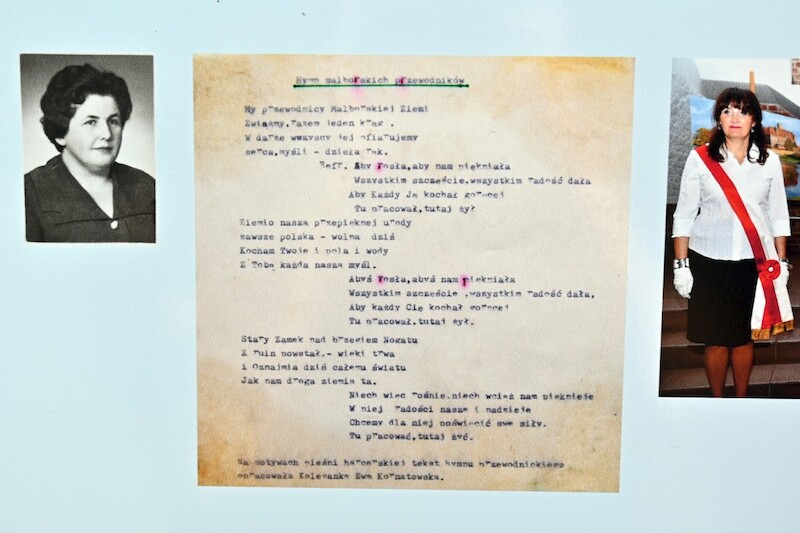 Hymn malborskich przewodników
My przewodnicy Malborskiej Ziemi
Zwiążmy,razem jeden krąg .
W darze wszyscy jej ofiarujemy
serca,myśli - dzieła rąk.
Refr. Aby rosła,aby nam piękniała
Wszystkim szczęście,wszystkim radość dała
Aby Każdy Ją kochał goręcej
Tu pracował,tutaj żył
Ziemio nasza przepięknej urody
zawsze polska - wolna dziś
Kocham Twoje i pola i wody
Z Tobą każda nasza myśl.
Abyś rosła,abyś nam piękniała
Wszystkim szczęście ,wszystkim radość dała,
Aby każdy Cię kochał goręcej
Tu pracował,tutaj żył.
Stary Zamek nad brzegiem Nogatu
Z ruin powstał,- wieki trwa
i Oznajmia dziś całemu światu
Jak nam droga ziemia ta.
Niech więc rośnie,niech wciąż nam pięknieje
W niej radości nasze i nadzieje
Chcemy dla niej poświęcić swe siły.
Tu pracować,tutaj żyć.
Na motywach pieśni harcerskiej tekst hymnu przewodnickiego
opracowała Koleżanka Ewa Kornatowska.